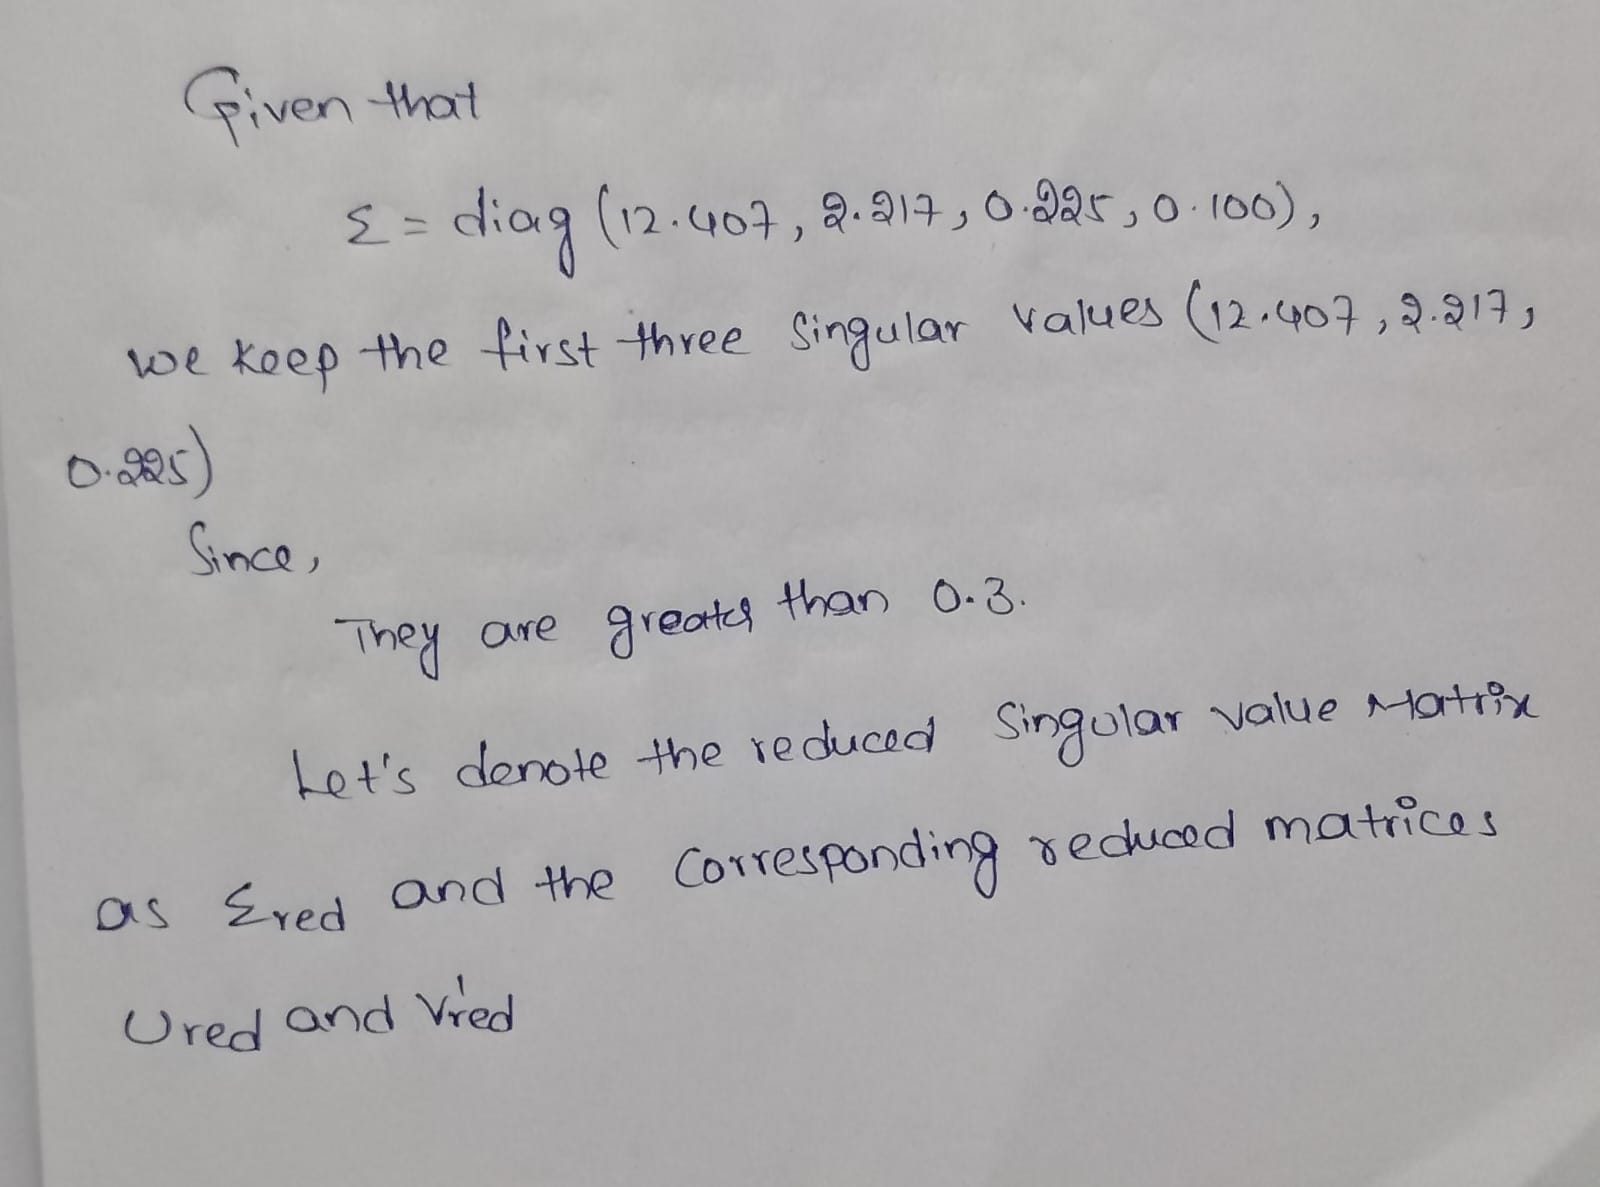 Given that
Σ = diag (12.407, 2.217, 0.225, 0.100),
we keep the first three singular values (12.407, 2.217,
0.225)
Since,
They are greater than 0.3.
Let's denote the reduced Singular value Matrix
as Σred and the Corresponding reduced matrices
Ured and V'red